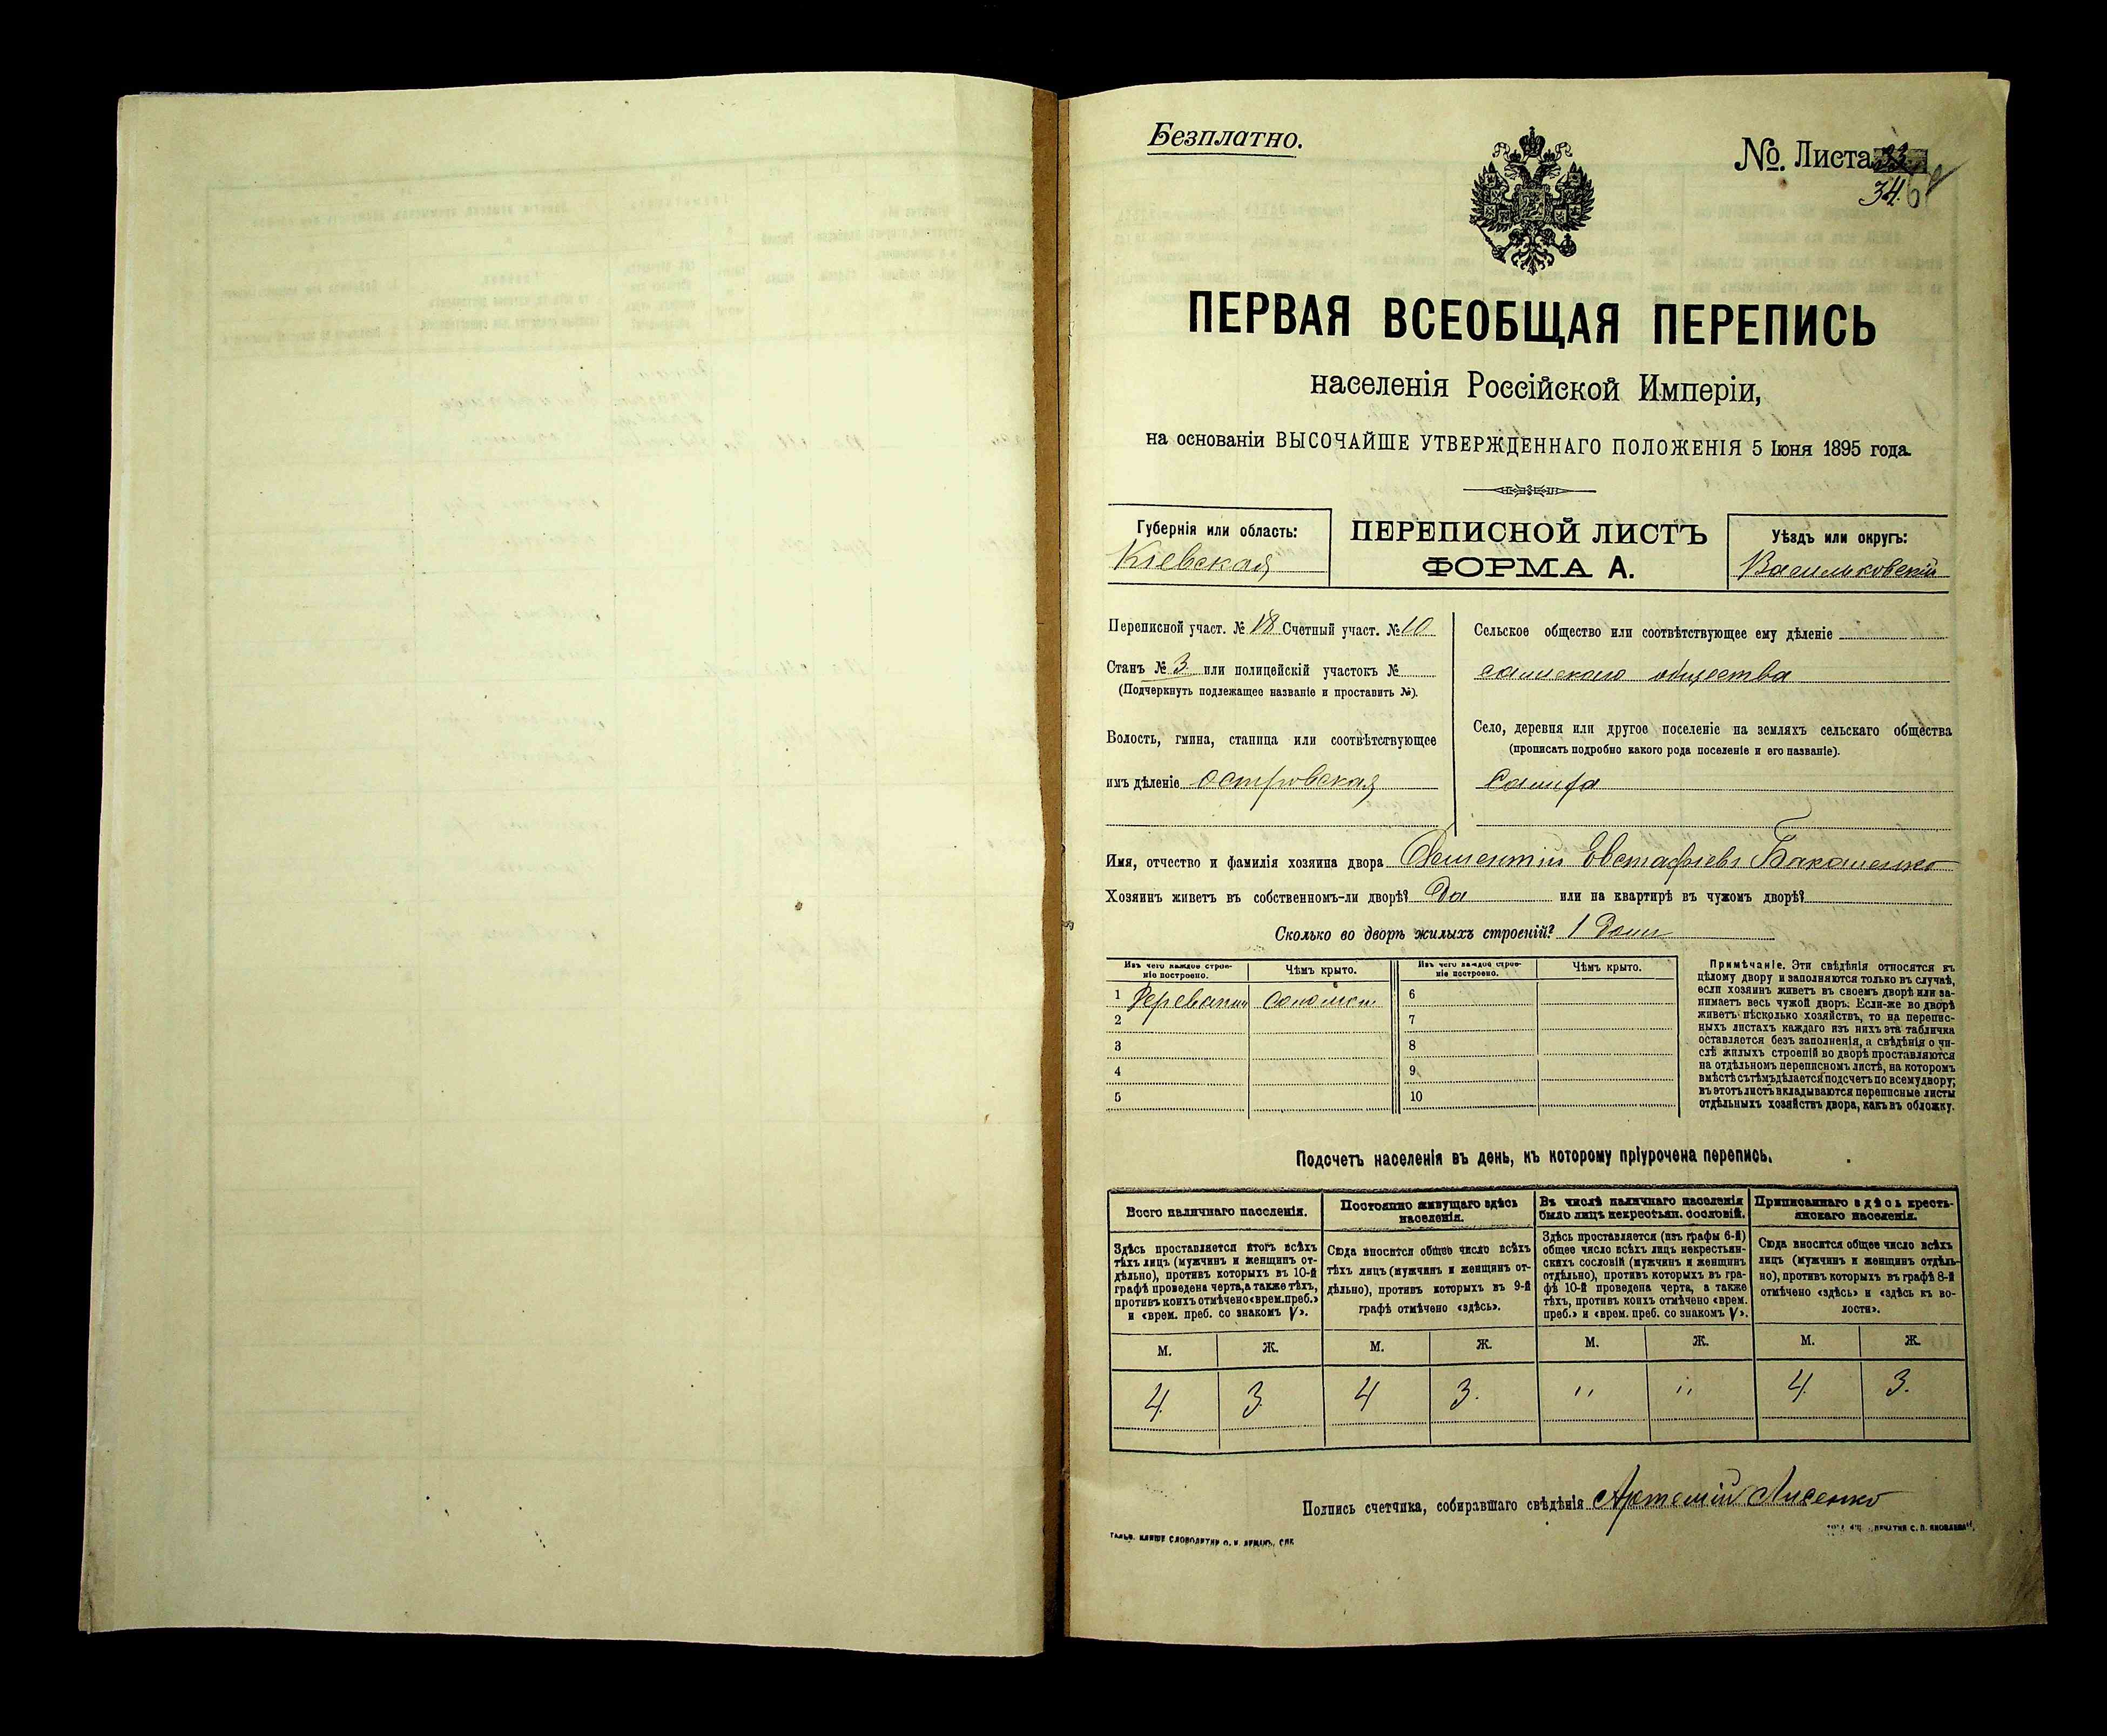 Безплатно.
№. Листа 33
34.
ПЕРВАЯ ВСЕОБЩАЯ ПЕРЕПИСЬ
населенія Россійской Имперіи,
на основаніи ВЫСОЧАЙШЕ УТВЕРЖДЕННАГО ПОЛОЖЕНІЯ 5 Іюня 1895 года.
Губернія или область:
Кіевская
ПЕРЕПИСНОЙ ЛИСТЪ
ФОРМА А.
Уѣздъ или округъ:
Васильковскій
Переписной участ. № 18 Счетный участ. № 10
Станъ № 3. или полицейскій участокъ №
(Подчеркнуть подлежащее названіе и проставить №).
Волость, гмина, станица или соотвѣтствующее
имъ дѣленіе островская
Сельское общество или соотвѣтствующее ему дѣленіе
общества
Село, деревня или другое поселеніе на земляхъ сельскаго общества
(прописать подробно какого рода поселеніе и его названіе).
Имя, отчество и фамилія хозяина двора Дементій Евстафіевъ
Хозяинъ живетъ въ собственномъ-ли дворѣ? Да или на квартирѣ въ чужомъ дворѣ?
Сколько во дворѣ жилыхъ строеній? 1 Домъ
Изъ чего каждое строе-
ніе построено.
Чѣмъ крыто.
Изъ чего каждое строе-
ніе построено.
Чѣмъ крыто.
1 Деревянный Соломой
2
3
4
5
6
7
8
9
10
Примѣчаніе. Эти свѣдѣнія относятся къ
цѣлому двору и заполняются только въ случаѣ,
если хозяинъ живетъ въ своемъ дворѣ или за-
нимаетъ весь чужой дворъ. Если-же во дворѣ
живетъ нѣсколько хозяйствъ, то на перепис-
ныхъ листахъ каждаго изъ нихъ эта табличка
оставляется безъ заполненія, а свѣдѣнія о чи-
слѣ жилыхъ строеній во дворѣ проставляются
на отдѣльномъ переписномъ листѣ, на которомъ
вмѣстѣ съ тѣмъ дѣлается подсчетъ по всему двору;
въ этотъ листъ вкладываются переписные листы
отдѣльныхъ хозяйствъ двора, какъ въ обложку.
Подсчетъ населенія въ день, къ которому пріурочена перепись.
Всего наличнаго населенія.
Здѣсь проставляется итогъ всѣхъ
тѣхъ лицъ (мужчинъ и женщинъ от-
дѣльно), противъ которыхъ въ 10-й
графѣ проведена черта, а также тѣхъ,
противъ коихъ отмѣчено «врем. преб.»
и «врем. преб. со знакомъ V».
Постоянно живущаго здѣсь
населенія.
Сюда вносится общее число всѣхъ
тѣхъ лицъ (мужчинъ и женщинъ от-
дѣльно), противъ которыхъ въ 9-й
графѣ отмѣчено «здѣсь».
Въ числѣ наличнаго населенія
было лицъ некрестьян. сословій.
Здѣсь проставляется (изъ графы 6-й)
общее число всѣхъ лицъ некрестьян-
скихъ сословій (мужчинъ и женщинъ
отдѣльно), противъ которыхъ въ гра-
фѣ 10-й проведена черта, а также
тѣхъ, противъ коихъ отмѣчено «врем.
преб.» и «врем. преб. со знакомъ V».
Приписаннаго здѣсь кресть-
янскаго населенія.
Сюда вносится общее число всѣхъ
лицъ (мужчинъ и женщинъ отдѣль-
но), противъ которыхъ въ графѣ 8-й
отмѣчено «здѣсь» и «здѣсь въ во-
лости».
М. Ж. М. Ж. М. Ж. М. Ж.
4. 3. 4 3. " " 4. 3.
Подпись счетчика, собиравшаго свѣдѣнія Артемій Лисенко